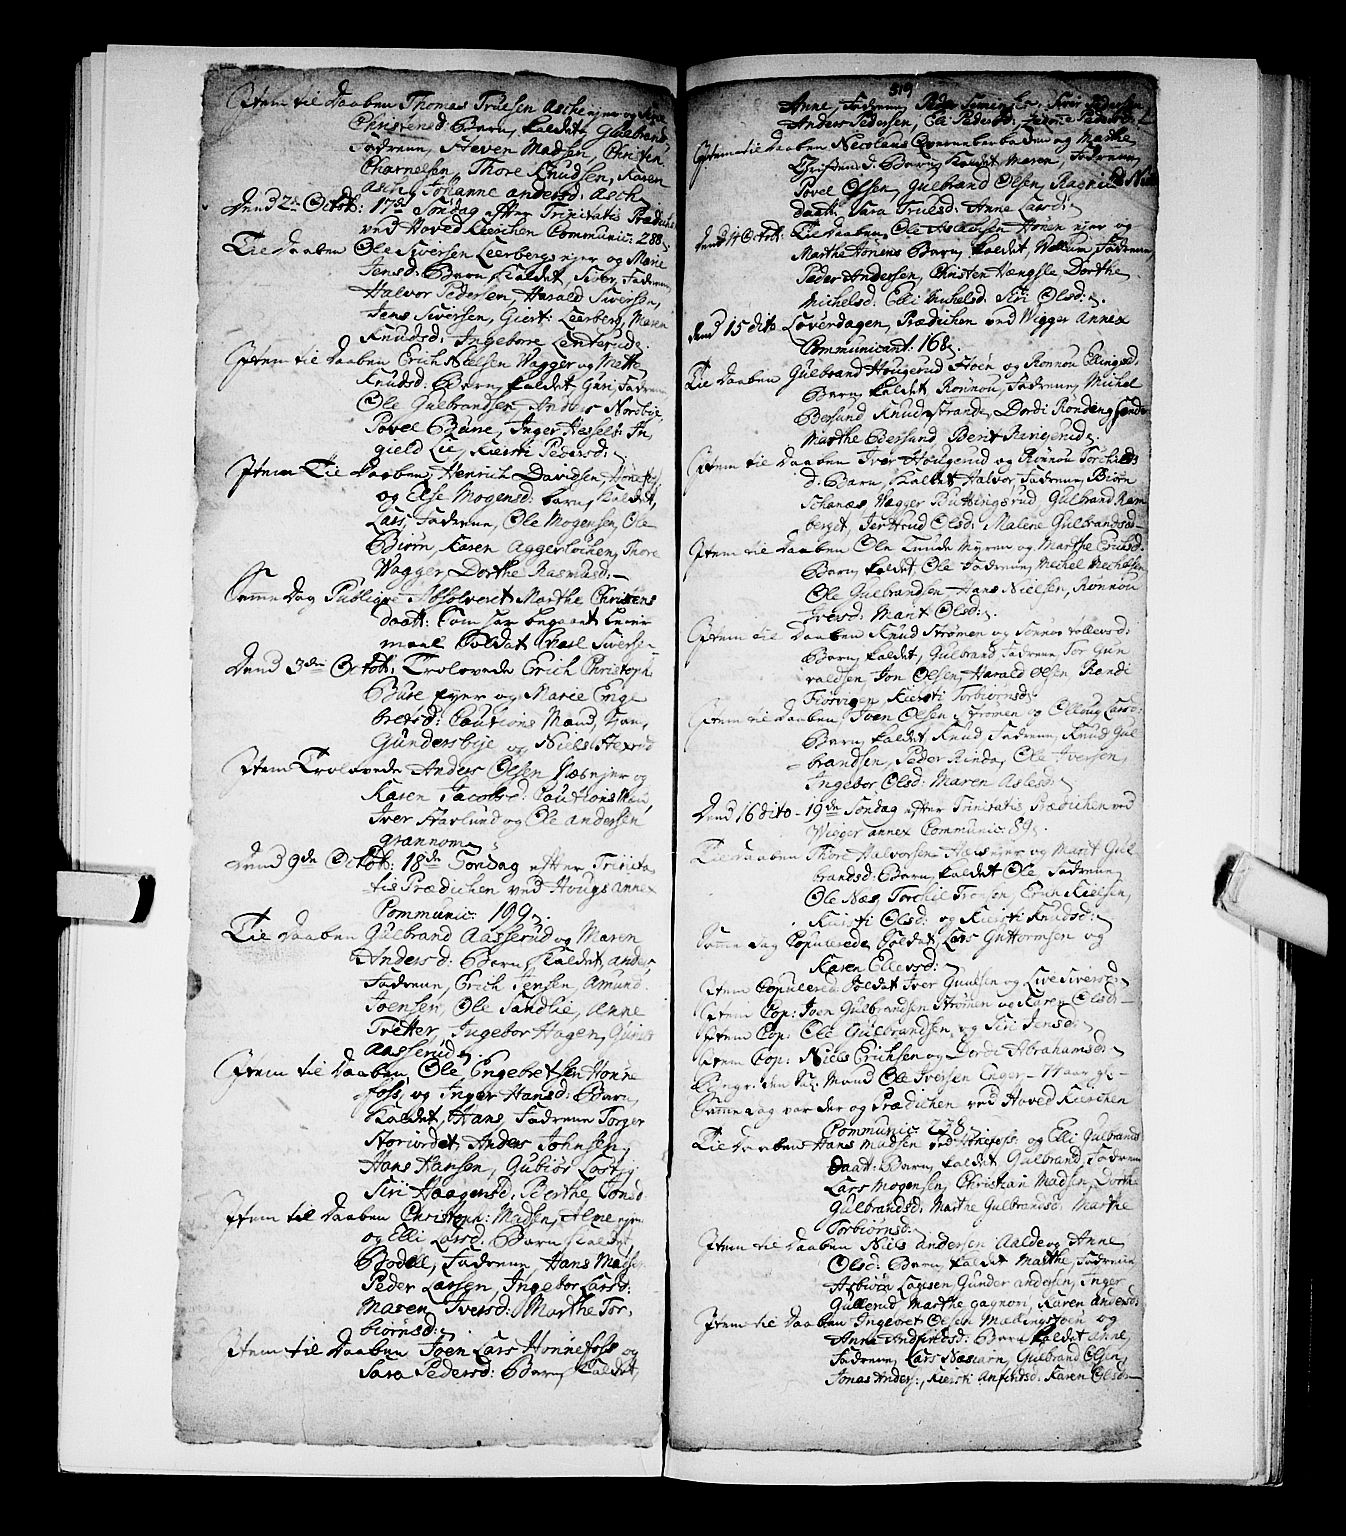 Item til Daaben Thomas Truesen Asch ejer og
Christensd: Barn, kaldet, Gulbrand,
Fadrene, Steven Madsen, Christen
Charnelsen, Thore Knudsen, Karen
Asch, Johanne Andersd: Asch
Dend 2 Octob: 17de Søndag efter Trinitatis Prædichen
ved Hoved Kirchen Communic: 288.
Til Daaben Ole Siversen Leerbergs ejer og Marie
Jensd: Barn, Kaldet, Siver, Fadrene,
Halvor Pedersen, Harald Siversen,
Jens Siversen, Giert: Leerberg, Maren
Knudsd: Ingebore Lenterude.
Item til Daaben Erich Nielsen Wagger og Mette
Knudsd: Barn, kaldet Guri, Fadrene,
Ole Gulbrandsen, Anders Nordbye
Povel Bune, Inger Hessels: In,
gield Lie, Kiersti Pedersd:
Item Til Daaben, Henrich Davidsen, Hønefos,
og Else Mogensd: barn, Kaldet,
Lars, Fadrene, Ole Mogensen, Ole
Biørn, Karen Aggerløchen, Thore
Wagger, Dorthe Rasmusd:
Samme Dag Publiqve Absolveret Marthe Christens
daatt: Som har begaaet Leier
maal Soldat Carl Siversen
Dend 3de Octob: Trolovede Erich Christoph:
Buse ejer og Marie Enge
bretsd: Cautions Mænd, Han,
Gundersbye og Niels Hexrud
Item Trolovede Anders Olsen Næs ejer og
Karen Jacobsd: Cautions Mæn,
Iver Fravlund og Ole Andersen
Grannom
Dend 9de Octob: 18de Søndag efter Trinita
tis Prædichen ved Hougs Annex
Communic: 199.
Til Daaben Gulbrand Aasserud og Maren
Andersd: Barn, Kaldet, Anders,
Fadrene, Erich Jensen, Amund
Joensen, Ole Sandlie, Anne
Tretter, Ingebor Hagen, Guri
Aasserud
Item til Daaben, Ole Engebretsen Hønne
foss, og Inger Hansd: Barn,
Kaldet, Hans, Fadrene Torger
Storiordet, Anders Johnsen,
Hans Hansen, Gubiør
Siri Haagensd: Berthe Jonsd:
Item til Daaben Christoph: Madsen, Alme ejer
og Elli Larsd: Barn Kaldet,
Bodel, Fadrene, Hans Madsen
Peder Larsen, Ingebor Larsd:
Maren, Iversd: Marthe Tor,
biørnsd:
Item til Daaben Joen Lars Hønnefoss og
Sara Pedersd: Barn, Kaldet,
519
Anne, Fadrene, Peder Simensen, Siver Pedersen
Anders Pedersen, Eli Pedersd:
Item til Daaben Nicolaus Qvernenberbachen og Marthe
Christensd: Barn, Kaldet Maren, Fadrene,
Povel Olsen, Gulbrand Olsen, Ragnild Niels
daatt: Sara Truesd: Anne Larsd:
Dend 14 Octob: Til Daaben, Ole Hønen ejer og
Marthe Hønens Barn, kaldet, Villum, Fadrene,
Peder Andersen, Christen Hængsle Dorthe
Michelsd: Elli Michelsd: Siri Olsd:
Dend 15 dito Løverdagen, Prædichen ved Wigger Annex
Communicant: 168.
Til Daaben Gulbrand Hougerud Hoen og Ronnou Ellingsd:
Barn, kaldet Ronnou, Fadrene, Michel
Bersund Knud Strande, Dordi Rondeng Sonder
Marthe Bersund Berit Ringerud
Item til Daaben Iver Hougerud og Ronnou Torchilds
d: Barn, Kaldet, Halvor, Fadrene, Biørn
Schanæs Wagger Buttingsrud Gulbrand Ram
berget, Jertrud Olsd: Malene Gulbrandsd
Item til Daaben Ole Knude Myren og Marthe Erichsd:
Barn, kaldet Ole Fadrene, Michel Michelsen
Ole Gulbrandsen Hans Nielsen, Ronnou
Iversd: Marit Olsd:
Item til Daaben Knud Strømen og Sonnou Tollevsd:
Barn, kaldet, Gulbrand Fadrene Tor Gun
valdsen, Jon Olsen, Harald Olsen Randi
Fiorvigen Kiersti Torbiørnsd:
Item til Daaben, Iven Olsen Strømen og Ollouq Larsd:
Barn, kaldet Knud Fadrene, Knud Gul
brandsen, Peder Rinda, Ole Iversen,
Ingebor Olsd: Maren Aslesd:
Dend 16 dito 19de Søndag efter Trinitatis Prædichen ved
Wigger Annex Communic: 89.
Til Daaben Thore Halvorsen Næss ejer og Marit Gul
brandsd: Barn, kaldet Ole, Fadrene
Ole Næs, Torchil Troesen, Erich Kielsen,
Kiersti Olsd: og Kiersti Knudsd:
Samme dag Copulerede, Soldat, Lars Guttormsen og
Karen Ellevsd:
Item Copulered Soldat Iver Guulsen og Live Siversd:
Item Cop: Joen Gulbrandsen Strømen og Karen Olsd:
Item Cop: Ole Gulbrandsen, og Siri Jensd:
Item Cop: Niels Erichsen og Dordi Abrahamsd:
Begr: den Sal: Mand Ole Iversen Enger 77 aar gl
Samme dag var der og Prædichen ved Hoved Kirchen
Communic: 238.
Til Daaben Hans Madsen ved Hønefoss: og Elli Gulbrands
daatt: Barn, kaldet Gulbrand, Fadrene
Lars Mogensen, Christian Madsen, Dorthe
Gulbrandsd: Marthe Gulbrandsd: Marthe
Torbiørnsd:
Item til Daaben Niels Andersen Aalde og Anne
Olsd: Barn, kaldet Marthe, Fadrene
Asbiørn Larsen Gunder Andersen, Inger
Gullerud Marthe Gagnon, Karen Andersd:
Item til Daaben Ingebret Olsen Mælingstoen og
Anna Anfindsd: Barn kaldet Anne,
Fadrene, Lars Næsiarn, Gulbrand Olsen,
Jonas Anders:, Kiersti Anfindsd. Karen Olsd: